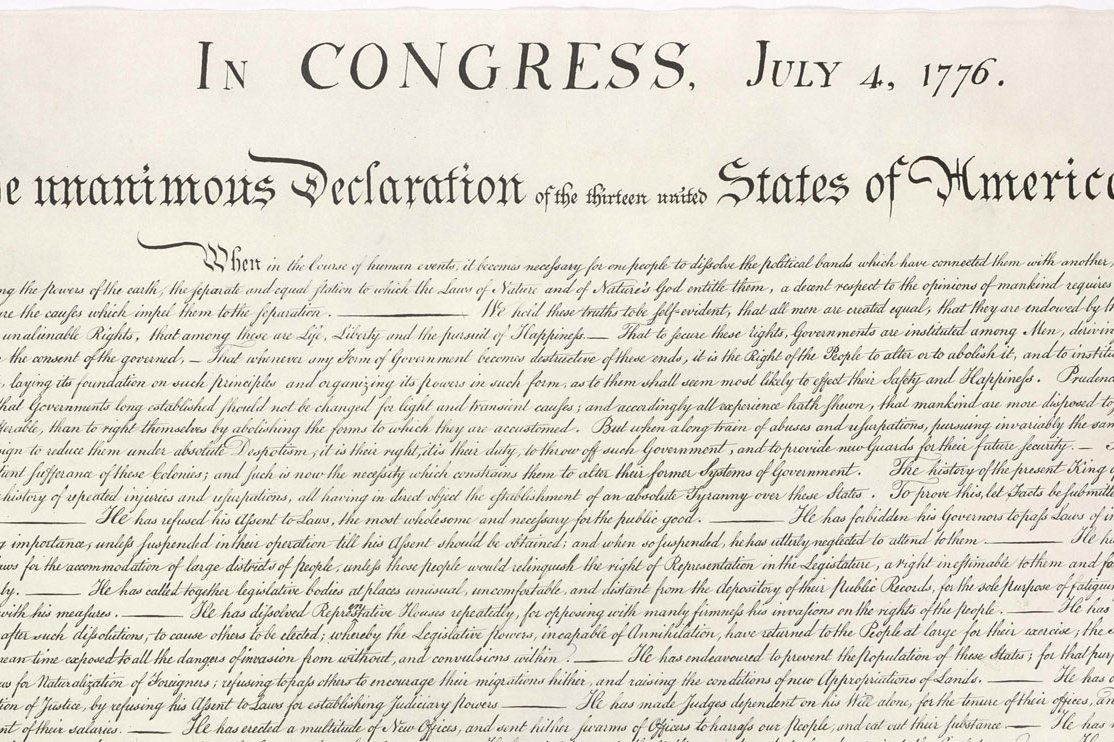 In CONGRESS, July 4, 1776.
e unanimous Declaration of the thirteen united States of Americ
When in the Course of human events, it becomes necessary for one people to dissolve the political bands which have connected them with another,
ng the powers of the earth, the separate and equal station to which the Laws of Nature and of Nature's God entitle them, a decent respect to the opinions of mankind requires
re the causes which impel them to the separation. ——— We hold these truths to be self-evident, that all men are created equal, that they are endowed by
unalienable Rights, that among these are Life, Liberty and the pursuit of Happiness.— That to secure these rights, Governments are instituted among Men, derivin
the consent of the governed, — That whenever any Form of Government becomes destructive of these ends, it is the Right of the People to alter or to abolish it, and to institu
, laying its foundation on such principles and organizing its powers in such form, as to them shall seem most likely to effect their Safety and Happiness. Pruden
that Governments long established should not be changed for light and transient causes; and accordingly all experience hath shewn, that mankind are more disposed to
fferable, than to right themselves by abolishing the forms to which they are accustomed. But when a long train of abuses and usurpations, pursuing invariably the sam
sign to reduce them under absolute Despotism, it is their right, it is their duty, to throw off such Government, and to provide new Guards for their future security. —
tient sufferance of these Colonies; and such is now the necessity which constrains them to alter their former Systems of Government. The history of the present King o
history of repeated injuries and usurpations, all having in direct object the establishment of an absolute Tyranny over these States. To prove this, let Facts be submitte
——— He has refused his Assent to Laws, the most wholesome and necessary for the public good. ——— He has forbidden his Governors to pass Laws of i
g importance, unless suspended in their operation till his Assent should be obtained; and when so suspended, he has utterly neglected to attend to them. ——— He ha
aws for the accommodation of large districts of people, unless those people would relinquish the right of Representation in the Legislature, a right inestimable to them and fo
ly. —— He has called together legislative bodies at places unusual, uncomfortable, and distant from the depository of their public Records, for the sole purpose of fatigu
with his measures. —— He has dissolved Representative Houses repeatedly, for opposing with manly firmness his invasions on the rights of the people. —— He has
after such dissolutions, to cause others to be elected; whereby the Legislative powers, incapable of Annihilation, have returned to the People at large for their exercise; the
mean time exposed to all the dangers of invasion from without, and convulsions within. —— He has endeavoured to prevent the population of these States; for that purp
ws for Naturalization of Foreigners; refusing to pass others to encourage their migrations hither, and raising the conditions of new Appropriations of Lands. —— He has o
tion of Justice, by refusing his Assent to Laws for establishing Judiciary powers —— He has made Judges dependent on his Will alone, for the tenure of their offices, an
nt of their salaries. —— He has erected a multitude of New Offices, and sent hither swarms of Officers to harrass our people, and eat out their substance. —— He has